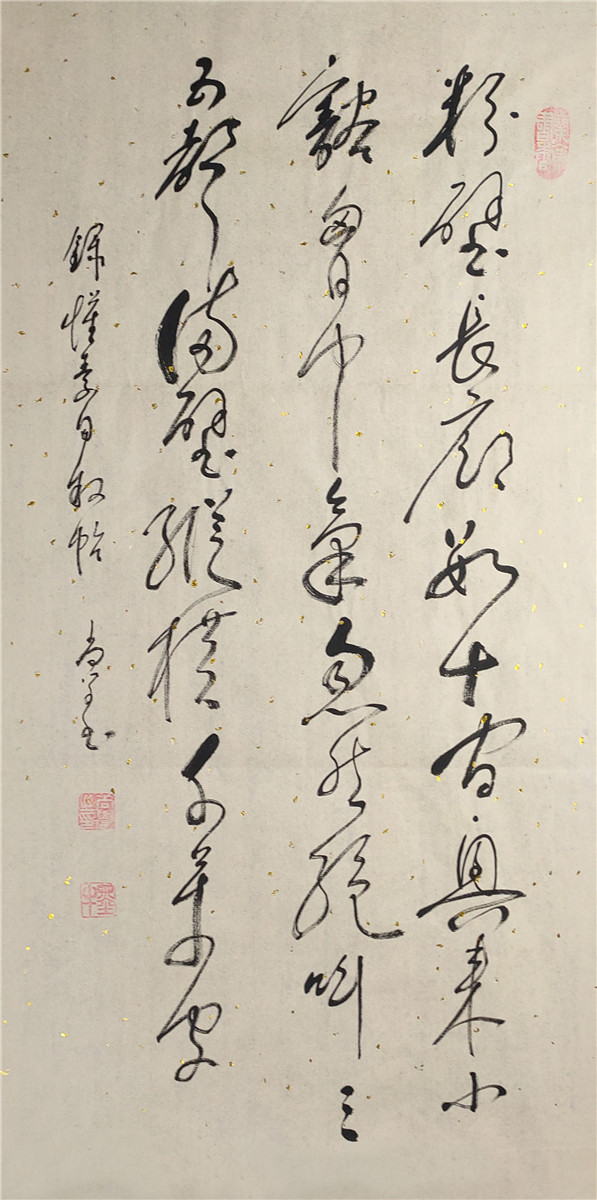 粉壁長廊數十間興來小
豁胷中氣忽然絕叫三
五聲滿壁縱橫千萬字
錄懷素自敘帖 尚書